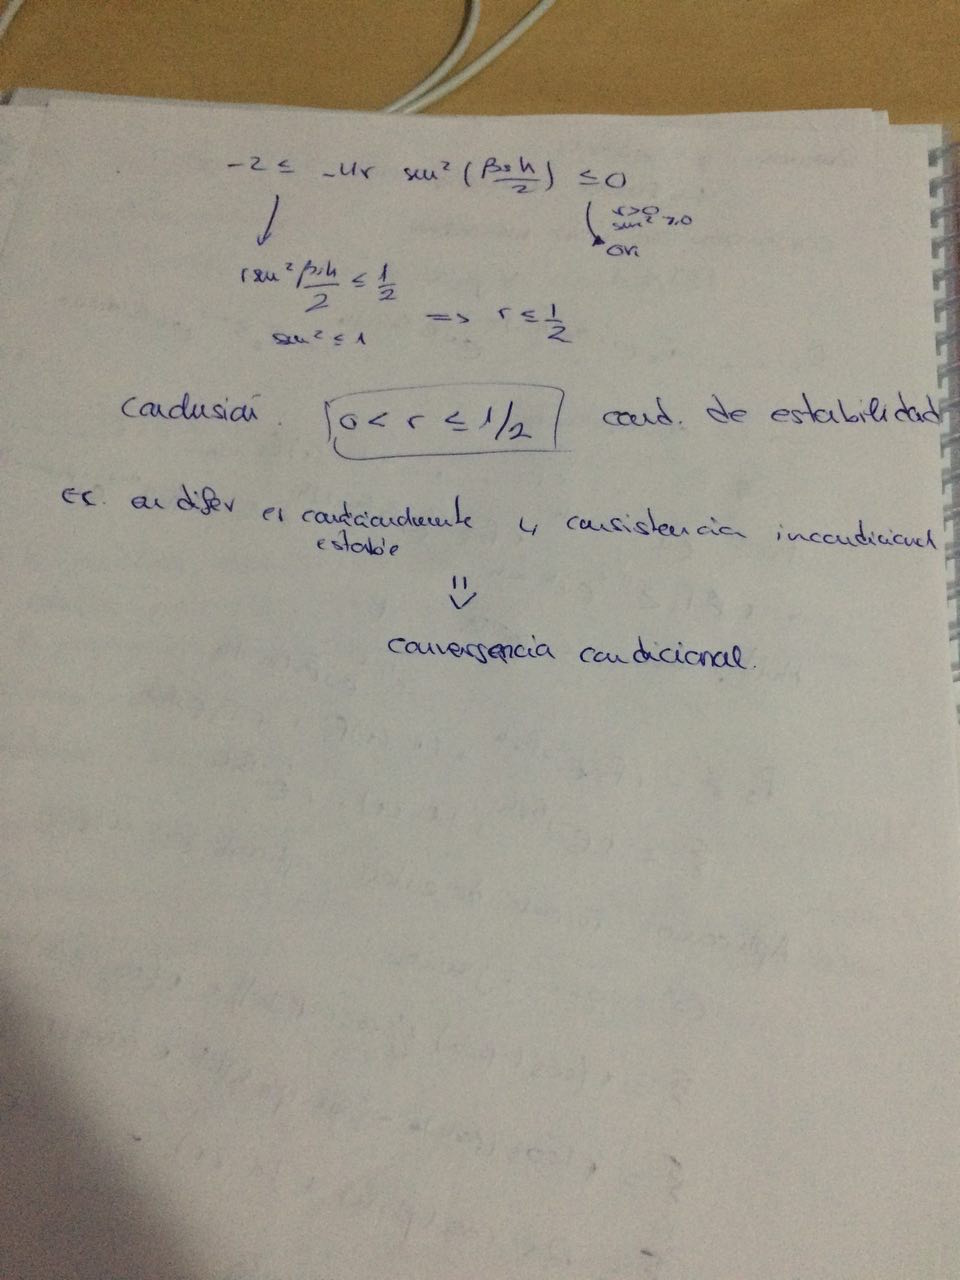 -2 ≤ -4r sen² (βsh/2) ≤ 0
r>0
sen² ≥ 0
OK
r sen² βsh/2 ≤ 1/2
sen² ≤ 1
=> r ≤ 1/2
Conclusión. 0 < r ≤ 1/2 cond. de estabilidad
Ec. en difer es condicionalmente estable y consistencia incondicional
=>
convergencia condicional.